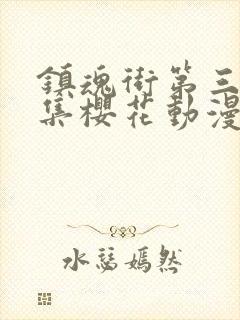 鎮魂街第三
集櫻花動漫
水慕嫣然